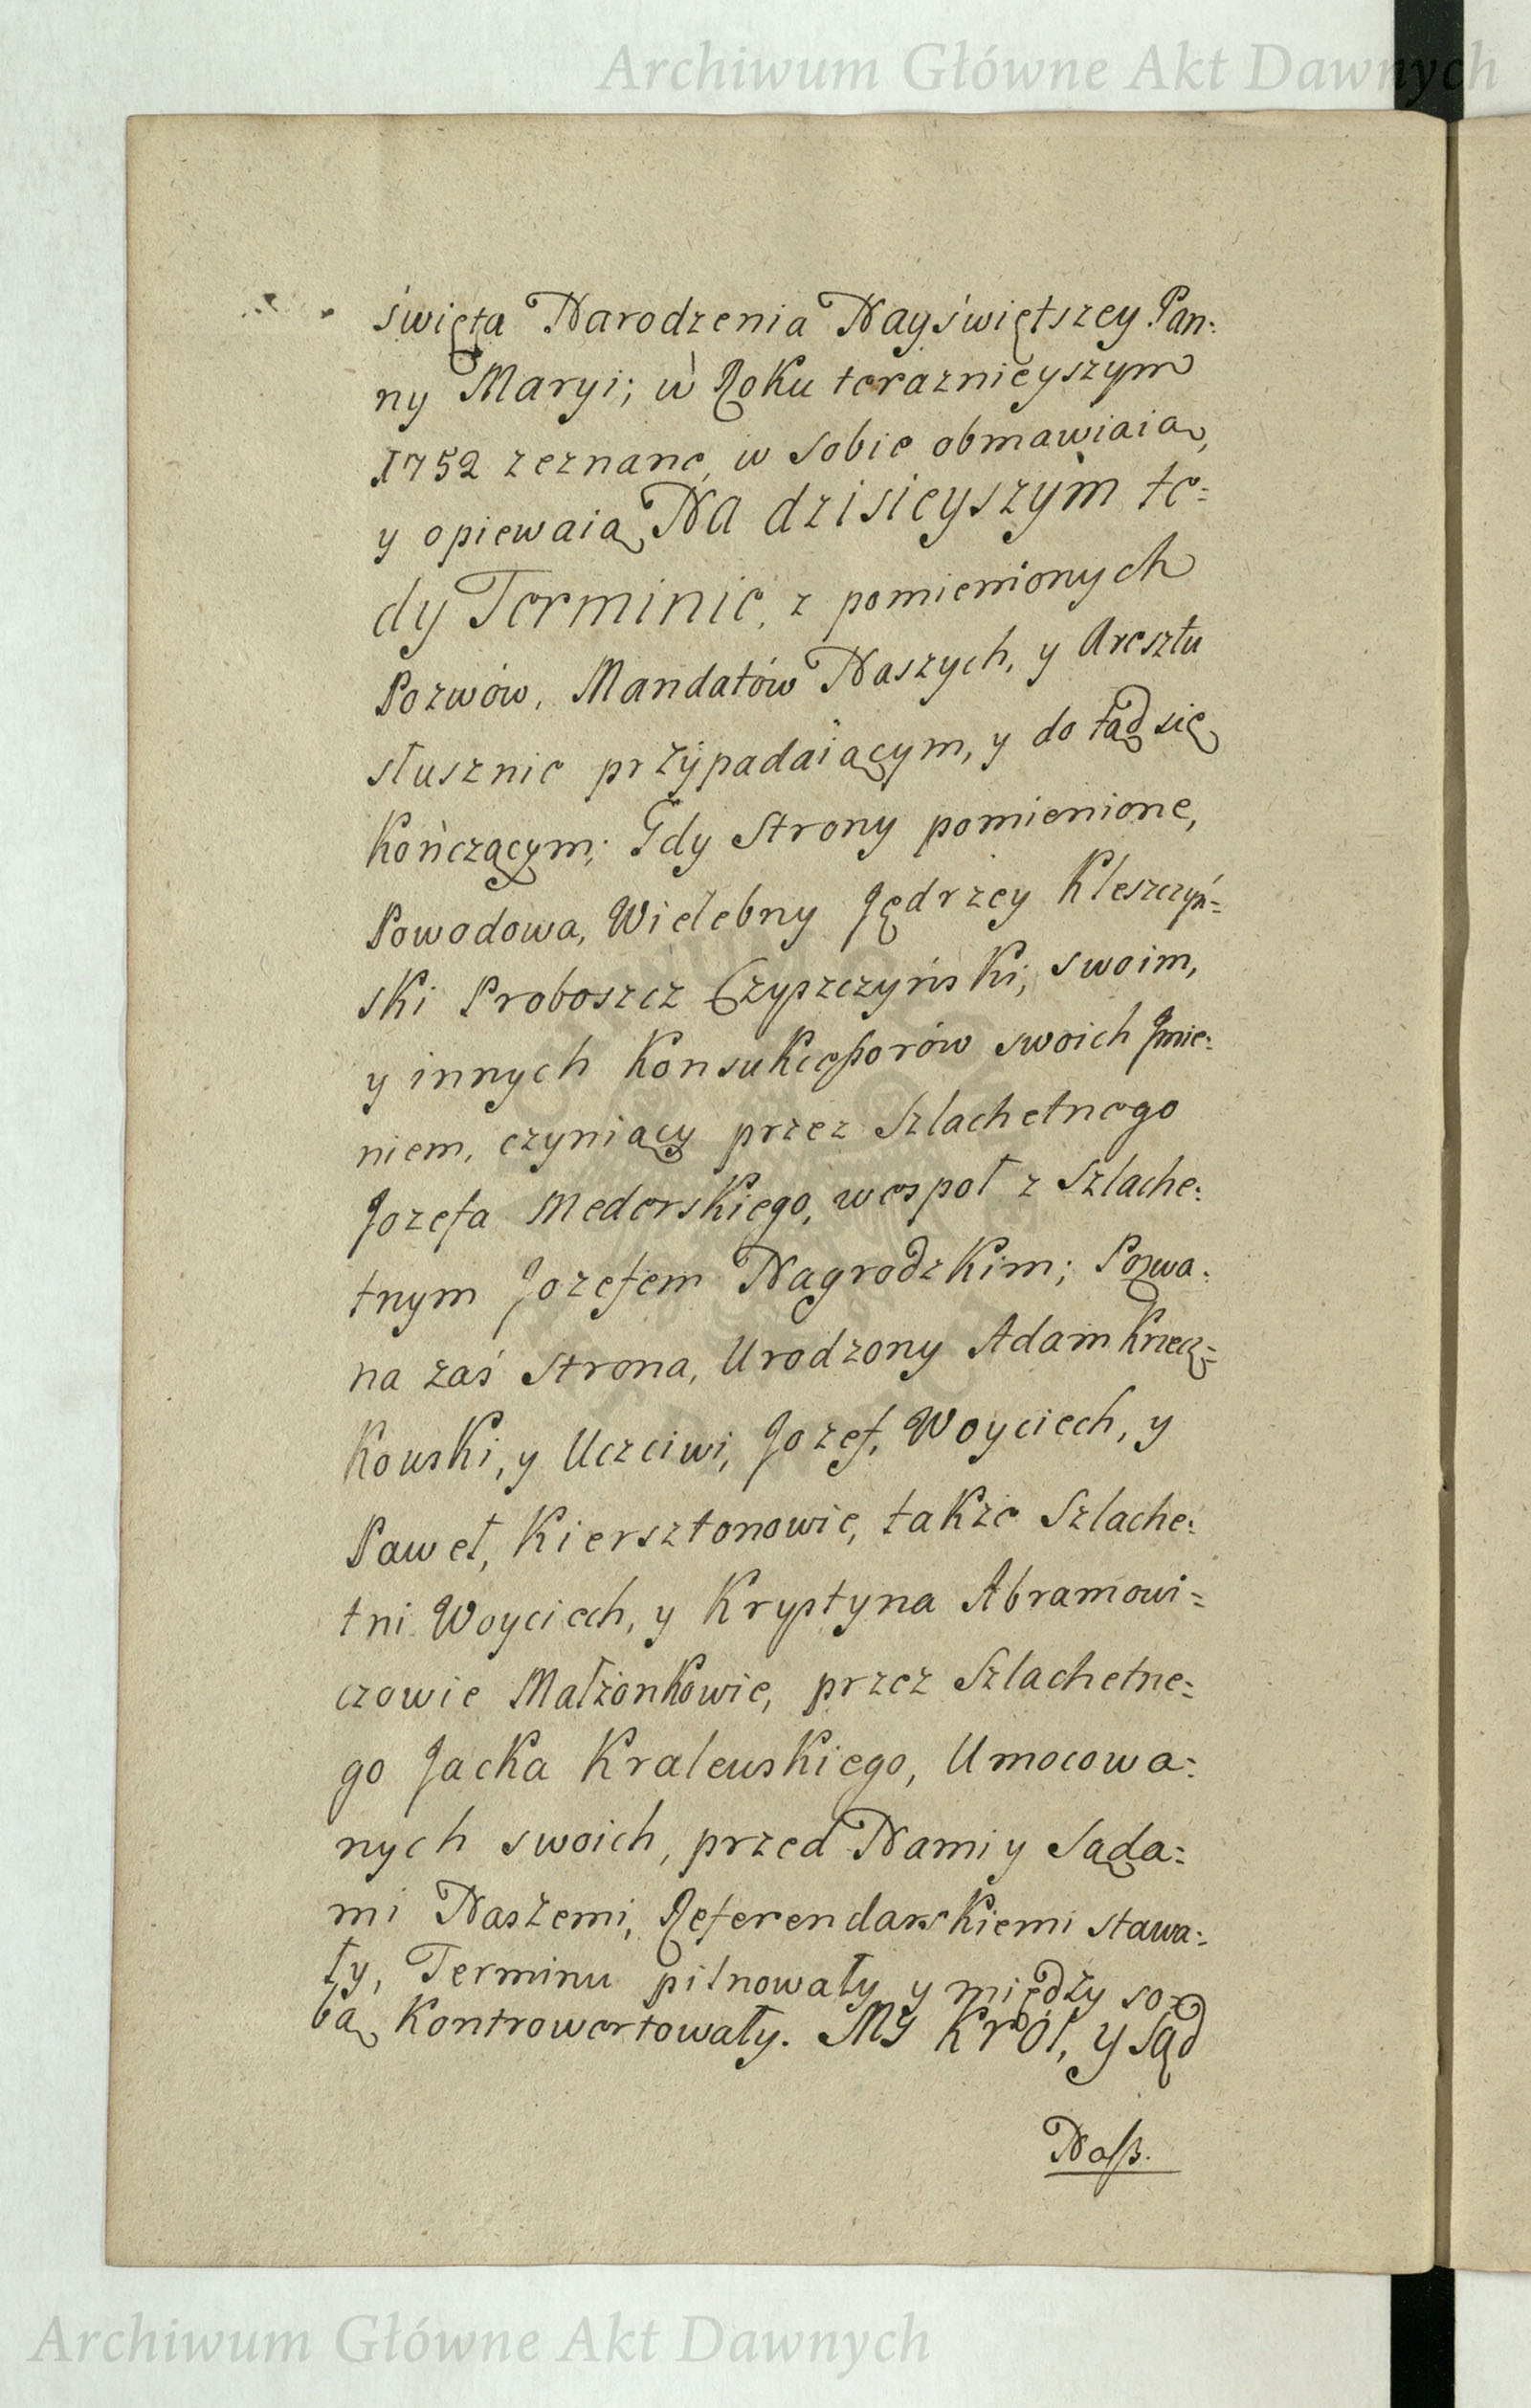 Archiwum Główne Akt Dawnych
święta Narodzenia Nayświętszey Pan:
ny Maryi; w Roku teraznieyszym
1752 zeznane, w sobie obmawiaią,
y opiewaią, Na dzisieyszym te=
dy Terminie, z pomienionych
Pozwów, Mandatów Naszych, y Aresztu
słusznie przypadaiącym, y do tąd się
kończącym; Gdy Strony pomienione,
Powodowa, Wielebny Jędrzey Kleszczyń=
ski Proboszcz Czyszczyński, swoim,
y innych Konsukceßorów swoich Jmie:
niem, czyniący przez Szlachetnego
Jozefa Mederskiego, wespoł z Szlache:
tnym Jozefem Nagrodzkim; Pozwa:
na zaś strona, Urodzony Adam Knecz=
kowski, y Uczciwi, Jozef, Woyciech, y
Paweł, Kiersztonowie, także Szlache:
tni Woyciech, y Krystyna Abramowi=
czowie Małżonkowie, przez Szlachetne=
go Jacka Kralewskiego, Umocowa=
nych swoich, przed Nami y Sąda=
mi Naszemi, Referendarskiemi stawa=
ły, Terminu pilnowały y między so=
bą kontrowertowały. My Król, y Sąd
Naß.
Archiwum Główne Akt Dawnych